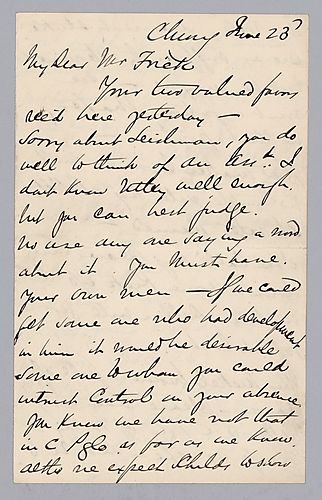 Cluny June 23d
My Dear Mr Frick
Your two valued favors
rec'd here yesterday —
Sorry about Leishman, you do
well to think of an Asst. I
don't know Utley well enough,
but you can best judge.
No use any one saying a word
about it. You must have
your own men — If we could
get some one who had development
in him it would be desirable
some one to whom you could
intrust Control in your absence
You know we have not that
in C P & Co as far as we know.
altho we expect Childs to show